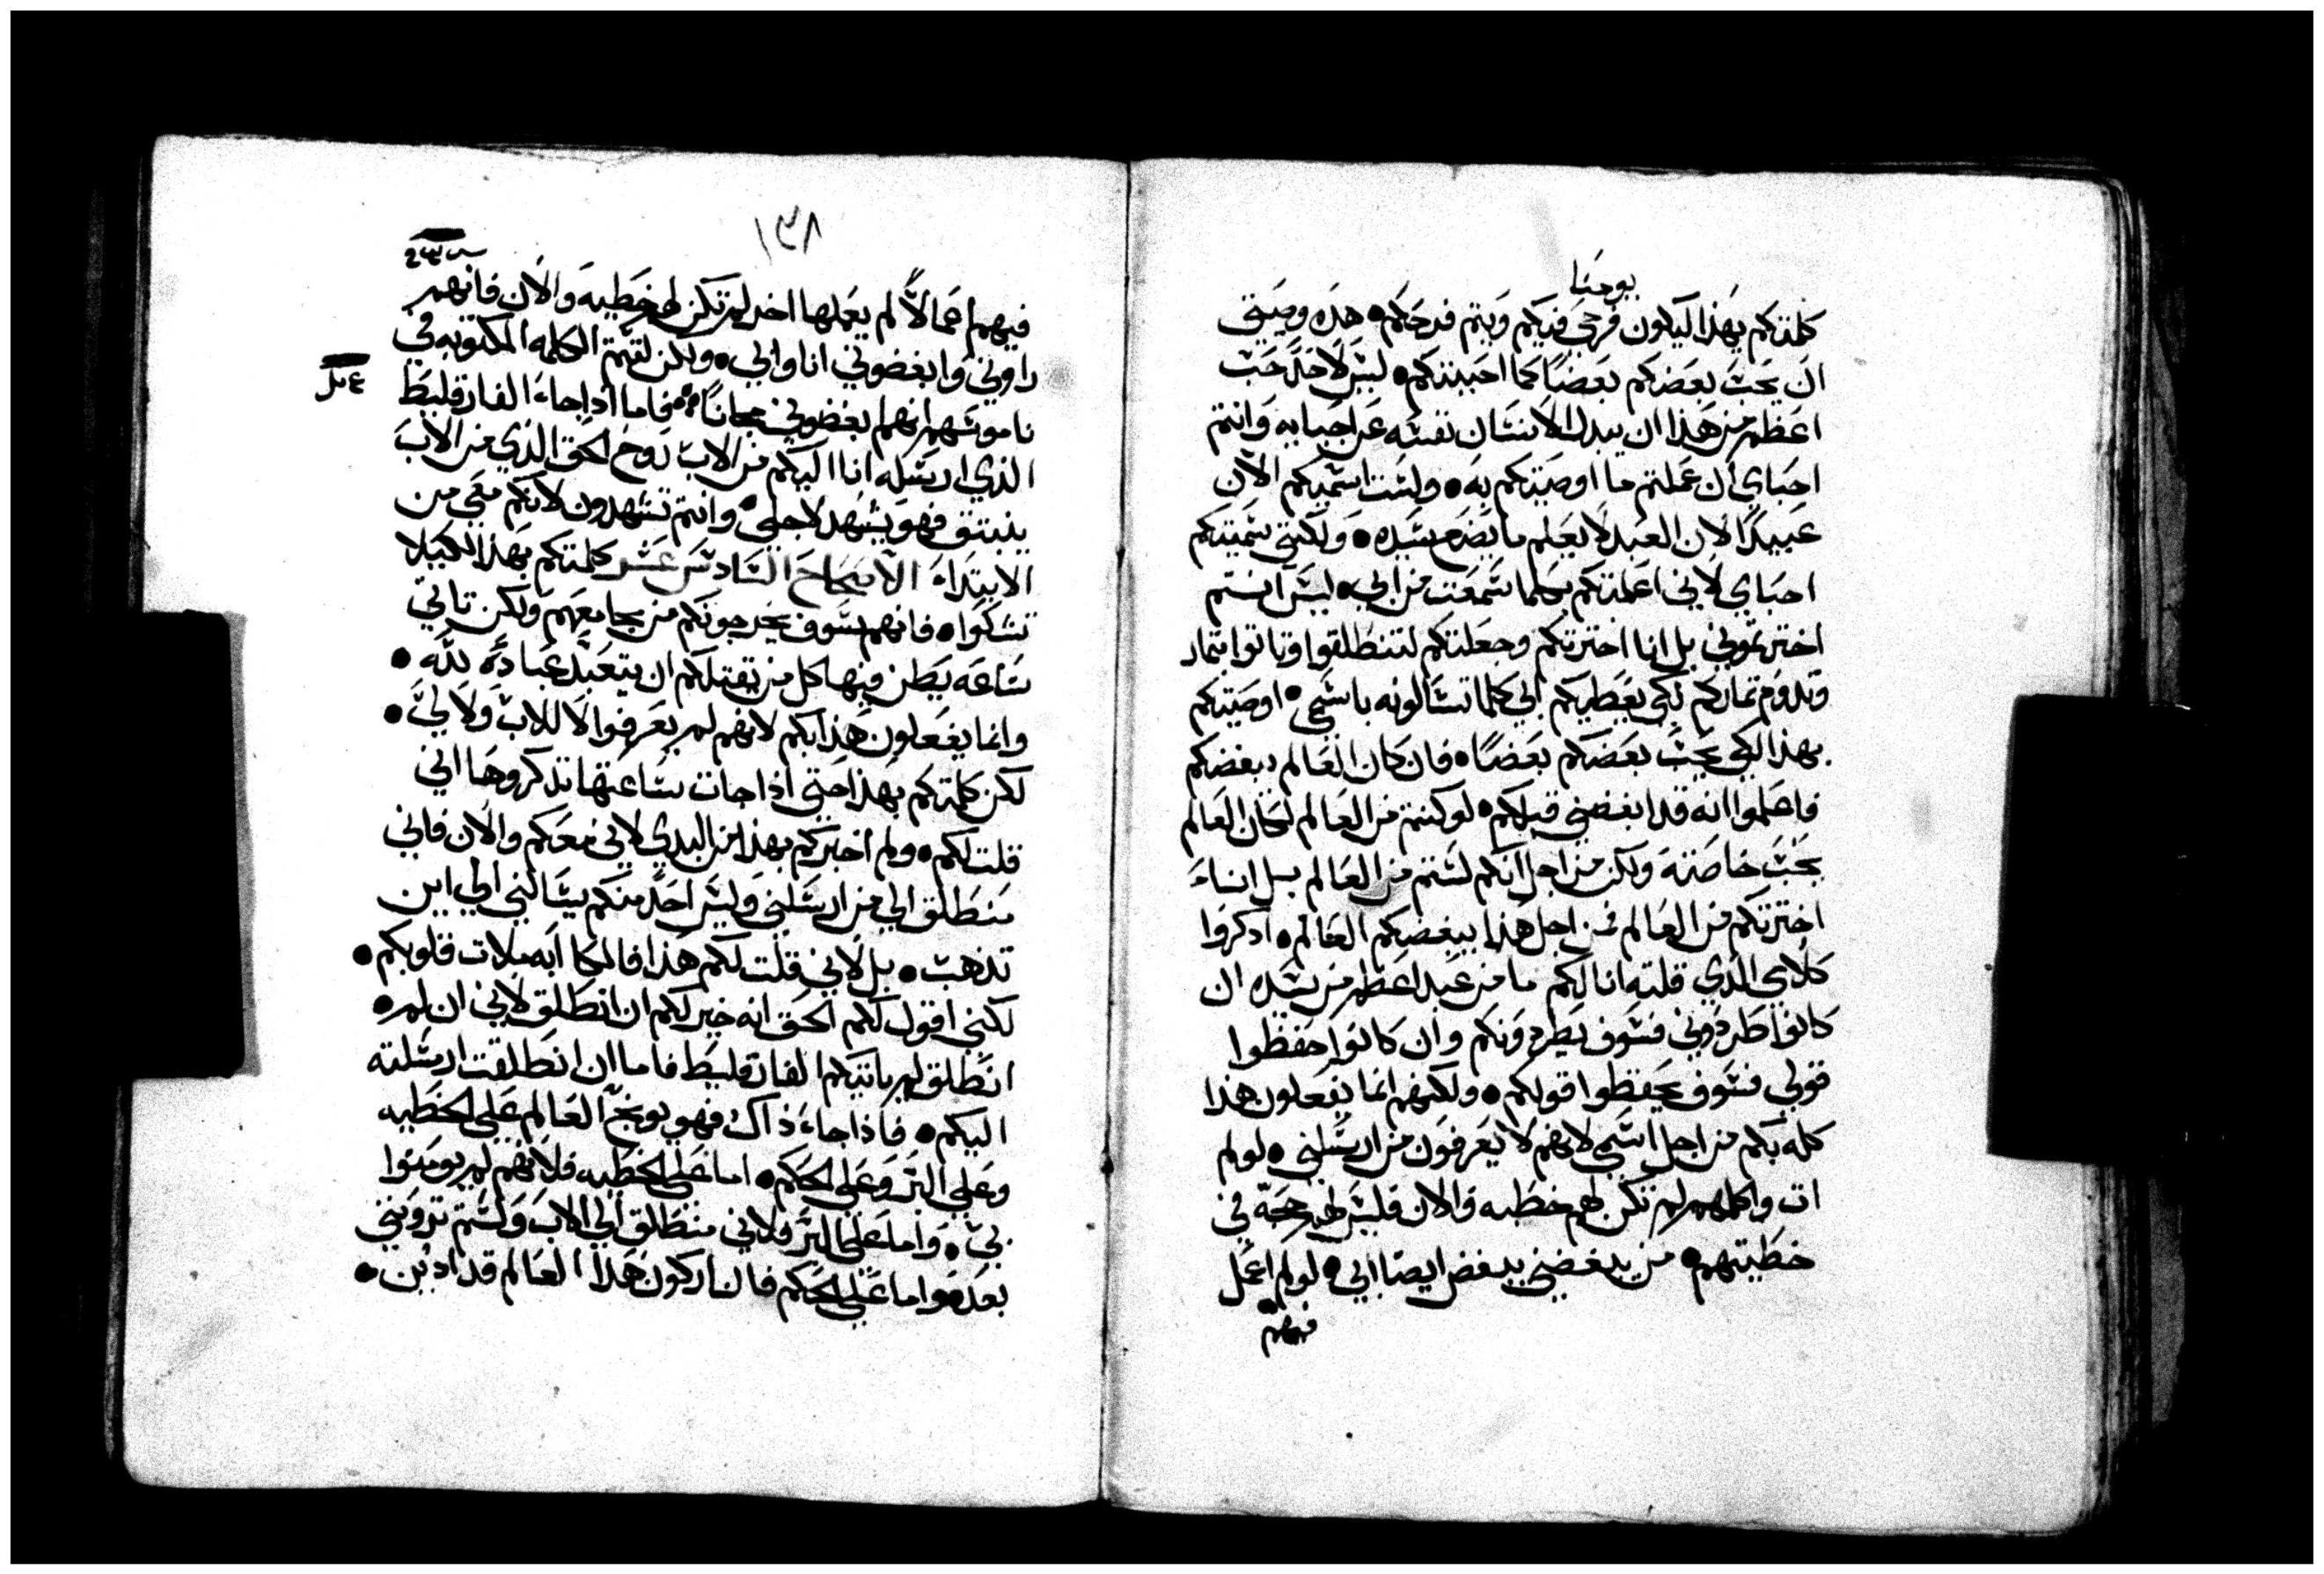 يوحنا
كلمتكم بهذا ليكون فرحي فيكم ويتم فرحكم • هذه وصيتي
ان يحب بعضكم بعضًا كما احببتكم • ليس لاحد حب
اعظم من هذا ان يبدل الانسان نفسه عن احبايه وانتم
احباي ان عملتم ما اوصيتكم به • ولست اسميكم الان
عبيدًا لان العبد لا يعلم ما يصنع سيده • ولكني سميتكم
احباي لاني اعلمتكم بكلما سمعت من ابي • ليس انتم
اخترتموني بل انا اخترتكم وجعلتكم لتنطلقوا وتاتوا بثمار
وتدوم ثماركم لكي يعطيكم ابي كلما تسالونه باسمي • اوصيتكم
بهذا لكي يحب بعضكم بعضًا • فان كان العالم يبغضكم
فاعلموا انه قد ابغضني قبلكم • لو كنتم من العالم لكان العالم
يحب خاصته ولكن من اجل انكم لستم من العالم بل انا
اخترتكم من العالم فمن اجل هذا يبغضكم العالم • اذكروا
كلامي الذي قلته انا لكم ما من عبد اعظم من سيده ان
كانوا طردوني فسوف يطردونكم وان كانوا حفظوا
قولي فسوف يحفظوا قولكم • ولكنهم انما يفعلون هذا
كله بكم من اجل اسمي لانهم لا يعرفون من ارسلني • لو لم
ات واكلمهم لم تكن لهم خطيه والان فليس لهم حجة في
خطيتهم • من يبغضني يبغض ايضا ابي • لو لم اعمل
فيهم
١٣٨
فيهم اعمالًا لم يعملها احد لم تكن لهم خطيه والان فانهم
راوني وابغضوني انا وابي • ولكن لتتم الكلمه المكتوبه في
ناموسهم انهم ابغضوني مجانًا • فاما اذا جاء الفارقليط
الذي ارسله انا اليكم من الاب روح الحق الذي من الاب
ينبثق فهو يشهد لاجلي • وانتم تشهدون لانكم معي من
الابتداء الاصحاح السادس عشر كلمتكم بهذا لكيلا
تشكوا • فانهم سوف يخرجونكم من مجامعهم ولكن تاتي
ساعه يظن فيها كل من يقتلكم ان يتعبد عبادة لله •
وانما يفعلون هذا بكم لانهم لم يعرفوا لا للاب ولا لي •
لكن كلمتكم بهذا حتى اذا جات ساعتها تذكروها اني
قلت لكم • ولم اخبركم بهذا من البدي لاني معكم والان فاني
منطلق الي من ارسلني وليس احد منكم يسالني الي اين
تذهب • بل لاني قلت لكم هذا فالكابه ملات قلوبكم •
لكني اقول لكم الحق انه خير لكم ان انطلق لاني ان لم •
انطلق لم ياتيكم الفارقليط فاما ان انطلقت ارسلته
اليكم • فاذا جاء ذاك فهو يوبخ العالم على الخطيه
وعلي البر وعلى الحكم • اما على الخطيه فلانهم لم يومنوا
بي • واما على البر فلاني منطلق الي الاب ولستم تروني
بعد • واما على الحكم فان اركون هذا العالم قد ادين •